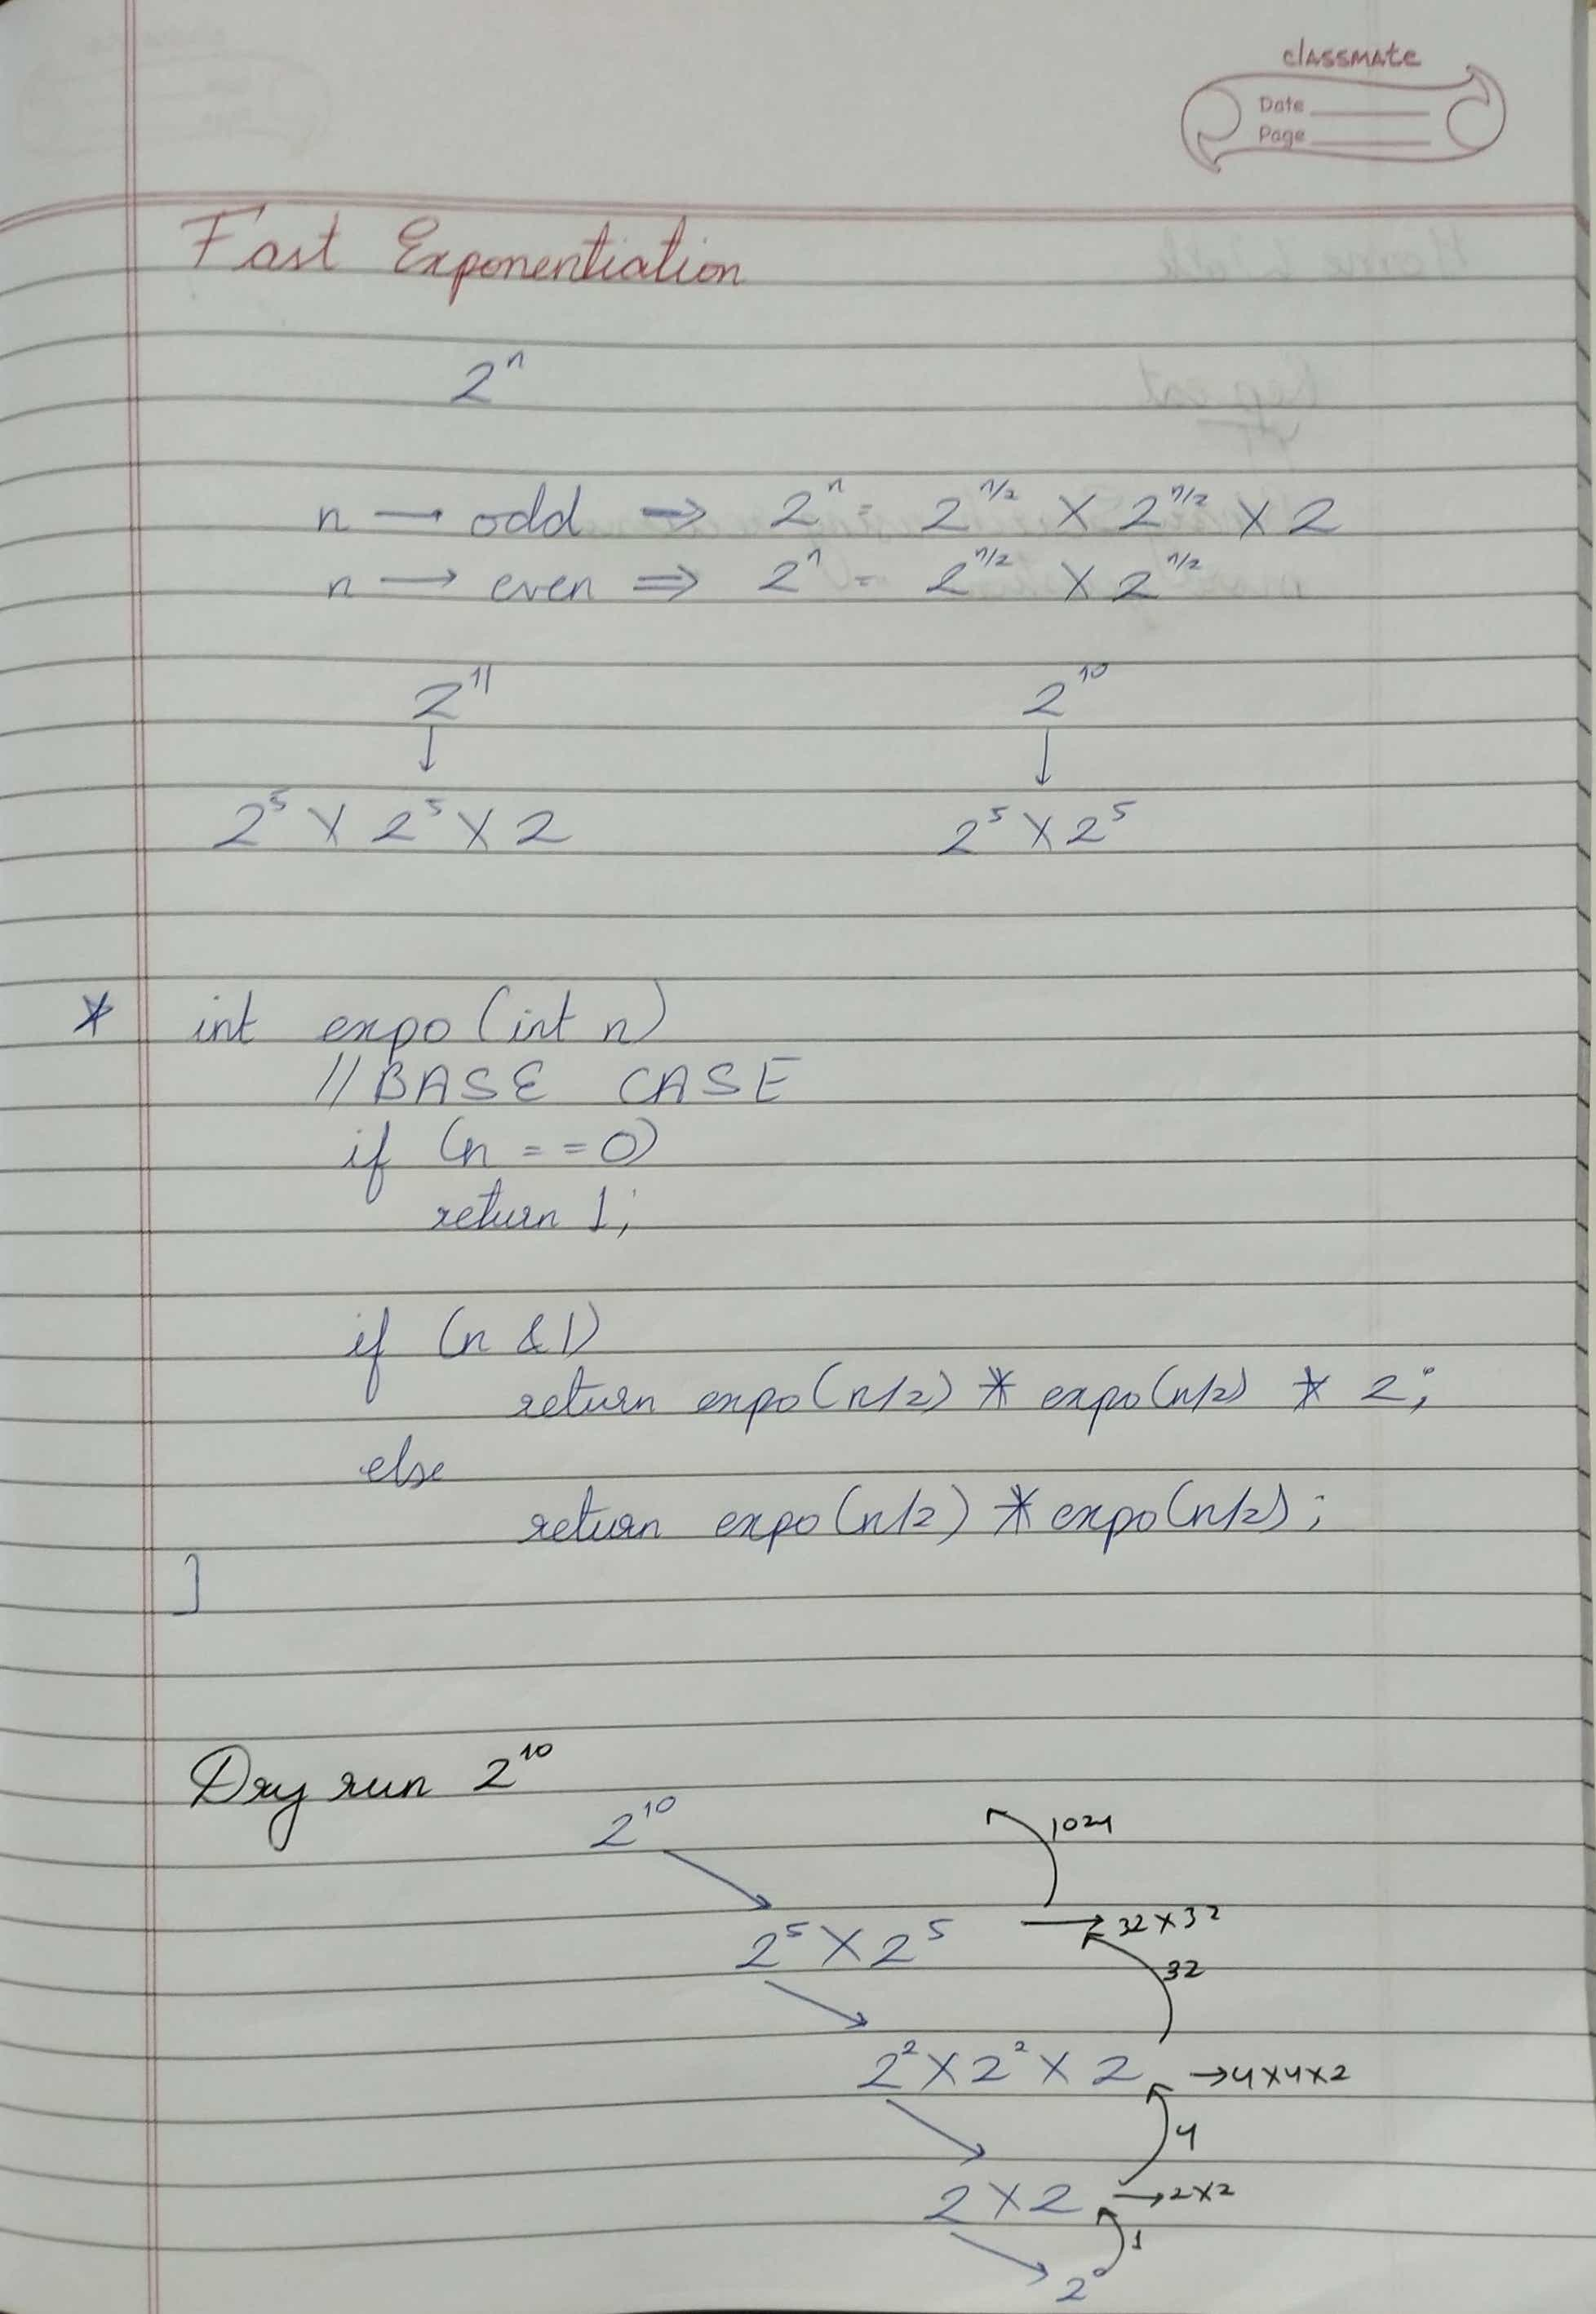 classmate
Date
Page
Fast Exponentiation
2ⁿ
n → odd ⇒ 2ⁿ = 2^(n/2) × 2^(n/2) × 2
n → even ⇒ 2ⁿ = 2^(n/2) × 2^(n/2)
2¹¹ 2¹⁰
↓ ↓
2⁵ × 2⁵ × 2 2⁵ × 2⁵
* int expo (int n)
//BASE CASE
if (n == 0)
return 1;
if (n & 1)
return expo(n/2) * expo(n/2) * 2;
else
return expo(n/2) * expo(n/2);
}
Dry run 2¹⁰
2¹⁰ 1024
2⁵ × 2⁵ → 32×32
32
2² × 2² × 2 → 4×4×2
4
2 × 2 → 2×2
1
2⁰